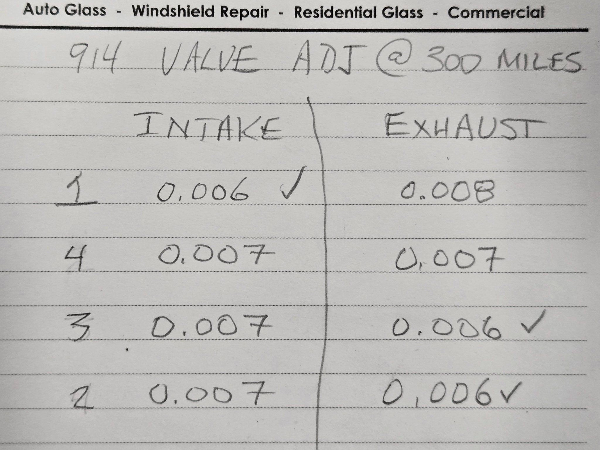 Auto Glass - Windshield Repair - Residential Glass - Commercial
914 VALVE ADJ @ 300 MILES
INTAKE EXHAUST
1 0.006 ✓ 0.008
4 0.007 0.007
3 0.007 0.006 ✓
2 0.007 0.006 ✓